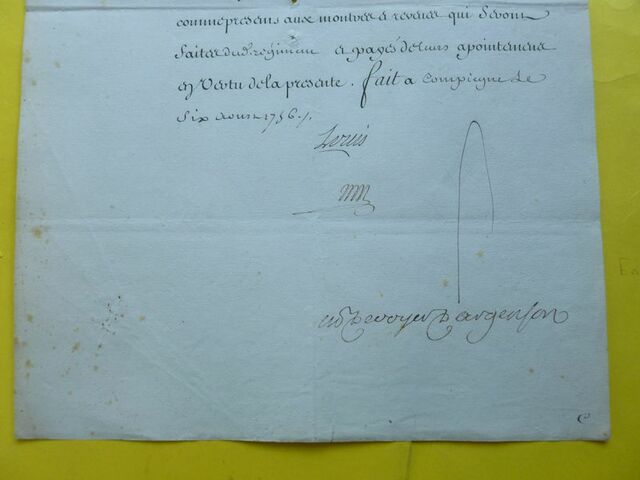 comme presens aux montres et reveües qui seront
faites dud. regiment et payés de leurs apointemens
en vertu de la presente. fait a Compiegne le
Six aoust 1756./.
Louis
M de voyer D argenson